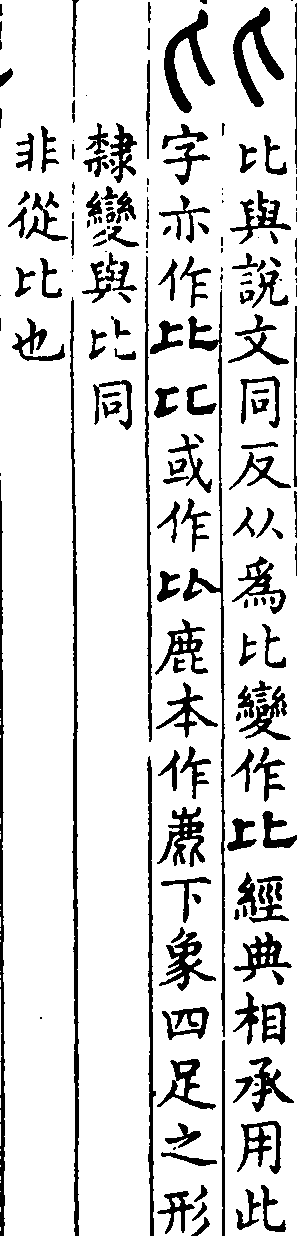 比與說文同反从爲比變作比經典相承用此
字亦作比匕或作㠯鹿本作䴡下象四足之形
隸變與比同
非從比也